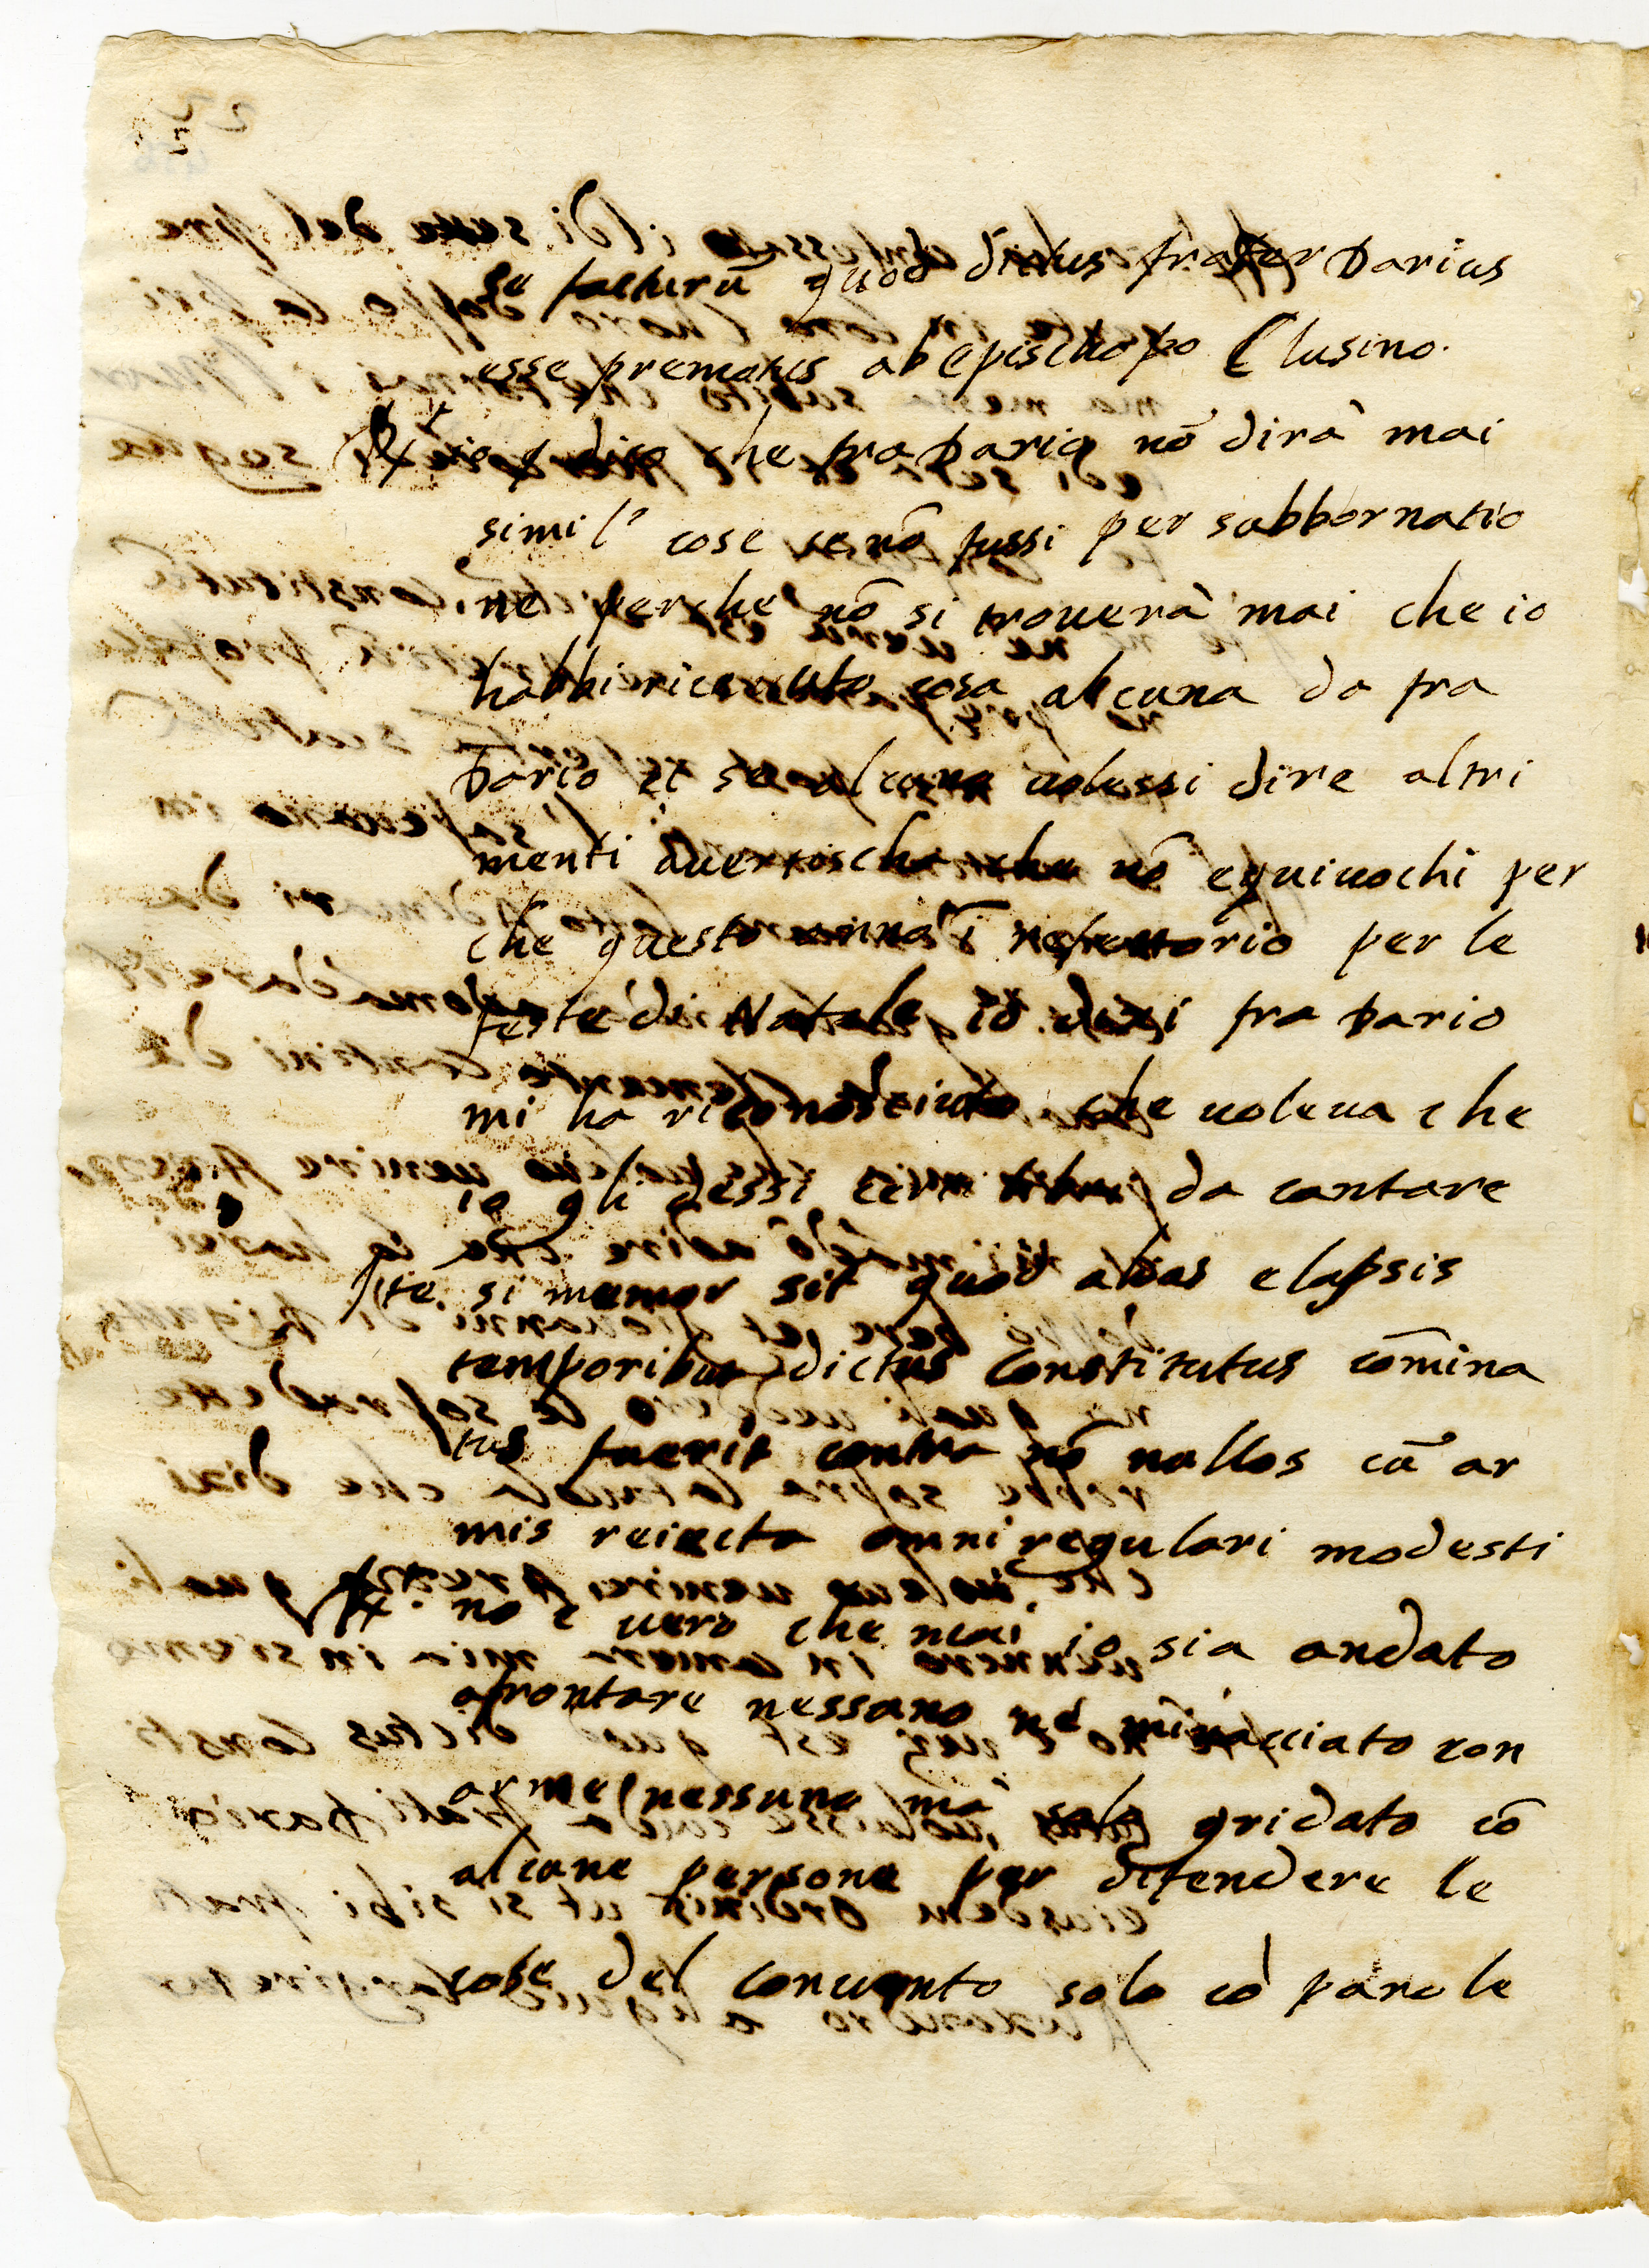 se facturū quod dictus frater Darius
esse prematus ab episcchopo Clusino.
Rx. io dico che fra Dario nō dirà mai
simil' cose se nō fussi per subbornatio
ne perche nō si trouerà mai che io
habbi riceuuto cosa alcuna da fra
Dario et se alcuno uolessi dire altri
menti auertischa che nō equiuochi per
che questo anno ī refettorio per le
feste di Natale io dissi fra Dario
mi ha riconosciuto che uoleua che
io gli dessi da cantare
Ite. si memor sit quod alias elapsis
temporibus dictus Constitutus cōmina
tus fuerit contra nō nullos cū ar
mis reiecta omni regulari modesti
Rx. nō è uero che mai io sia andato
afrontare nessuno nè minacciato con
arme nessuno ma solo gridato cō
alcune persone per difendere le
cose del conuento solo cō parole